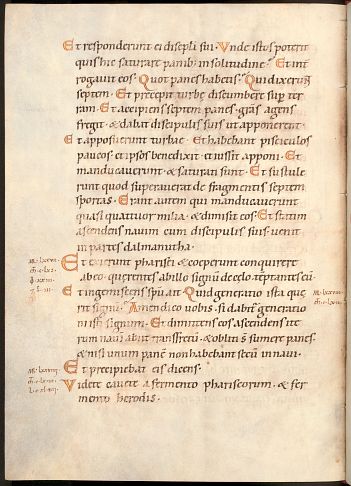 Et responderunt ei discipli sui. Unde istos poterit
quis hic saturare panib; in solitudine. Et int
rogavit eos. Quot panes habetis. Qui dixerun
septem. Et precepit turbe discumbere sup ter
ram. Et accipiens septem panes. grãs agens
fregit. & dabat discipulis suis ut apponerent.
Et apposuerunt turbae. Et habebant pisciculos
paucos. et ipsos benedixit et iussit apponi. Et
manducaverunt. & saturati sunt. Et sustule
runt quod superaverat de fragmentis septem
sportas. Erant autem qui manducaverunt
quasi quattuor milia. & dimisit eos. Et statim
ascendens navim cum discipulis suis. venit
in partes dalmanutha.
Et exierunt pharisei & coeperunt conquirere
cũ eo. querentes ab illo signũ de cęlo. teptantes eũ.
Et ingemiscens spũ ait. Quid generatio ista quę
rit signũ. Amen dico vobis. si dabit generatio
ni isti signum. Et dimittens eos. ascendens ite
rum navi abiit trans fretũ. & obliti s̃ sumere panes.
& nisi unum panẽ non habebant secũ in navi.
Et precipiebat eis dicens.
Videte cavete a fermento phariseorum. & fer
mento herodis.